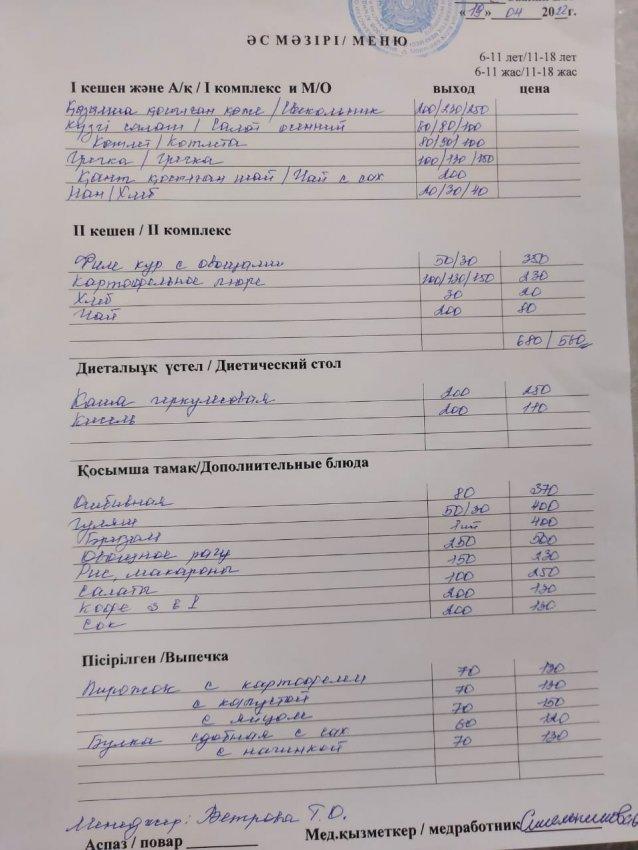 «19» 04 2022г.
ӘС МӘЗІРІ / МЕНЮ
6-11 лет/11-18 лет
6-11 жас/11-18 жас
І кешен және А/қ / І комплекс и М/О выход цена
қосылған көже / Свекольник 200/230/250
Күзгі салат / Салат осенний 60/80/100
Котлет / Котлета 80/90/100
Гречка / Гречка 100/130/150
Қант қосылған шай / Чай с сах 200
Нан / Хлеб 20/30/40
ІІ кешен / ІІ комплекс
Филе кур с овощами 50/30 350
Картофельное пюре 100/130/150 230
Хлеб 30 20
Чай 200 80
680/580
Диеталық үстел / Диетический стол
Каша геркулесовая 200 250
Кисель 200 110
Қосымша тамақ/Дополнительные блюда
Отбивная 80 370
Гуляш 50/30 400
Бризом 1 шт 400
Овощное рагу 250 500
Рис, макароны 150 230
Салаты 100 250
Кофе 3 в 1 200 130
Сок 200 130
Пісірілген /Выпечка
Пирожок с картофелем 70 130
с капустой 70 130
с яйцом 70 150
Булка сдобная с сах 60 120
с начинкой 70 130
Менеджер: Ветрова Т.О.
Аспаз / повар Мед.қызметкер / медработник